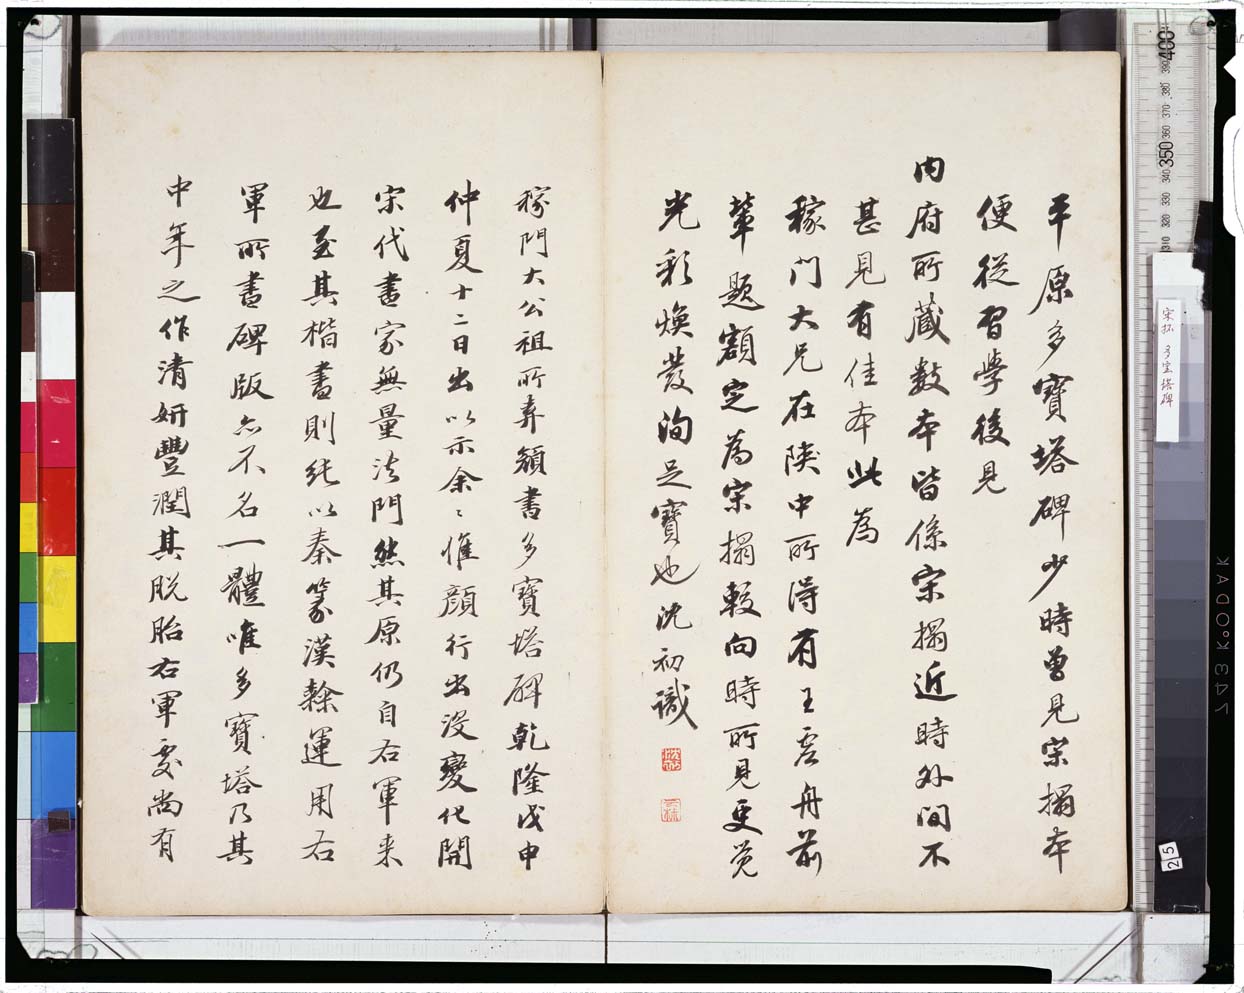 平原多寶塔碑少時曾見宋搨本
便從習學後見
內府所藏數本皆係宋搨近時外間不
甚見有佳本此為
稼門大兄在陝中所得有王虛舟前
輩題額定為宋搨較向時所見更覺
光彩煥發洵足寶也沈初識
稼門大公祖所弆顏書多寶塔碑乾隆戊申
仲夏十二日出以示余〻惟顏行出沒變化開
宋代書家無量法門然其原仍自右軍来
也至其楷書則純以秦篆漢隸運用右
軍所書碑版亦不名一體唯多寶塔乃其
中年之作清妍豐潤其脫胎右軍處尚有
宋拓 多宝塔碑
25
KODAK
400
350